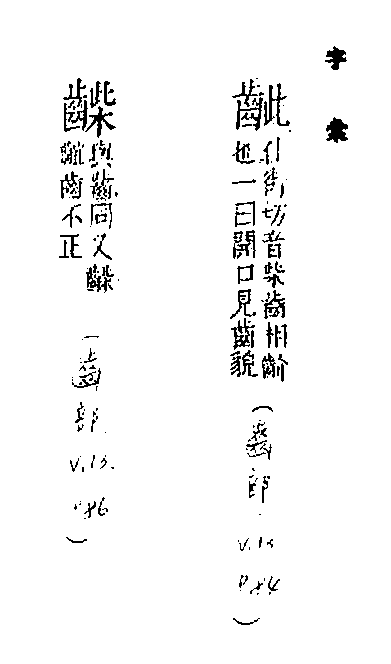 字彙
齜 仕街切音柴齒相齘
也一曰開口見齒貌
(齒部 v.13 p84)
與齜同又
齒不正
(齒部 v.13. p86)